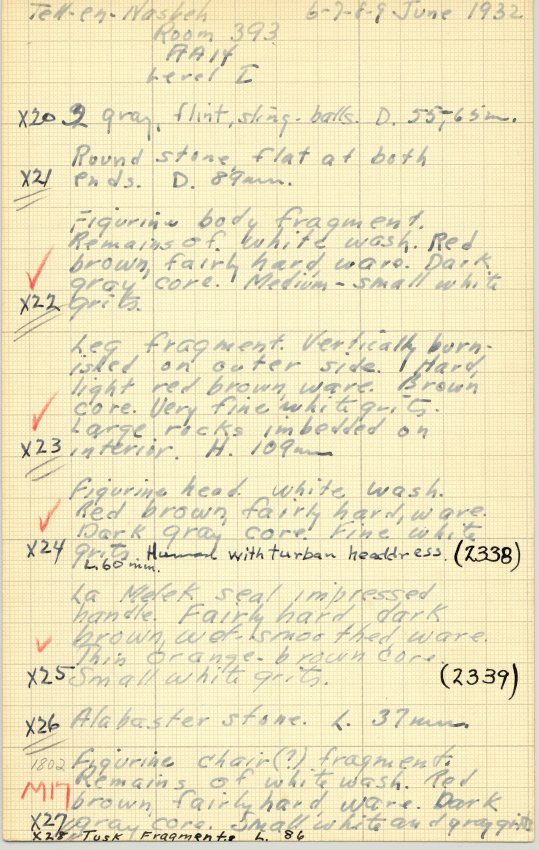 Tell-en-Nasbeh 6-7-8-9 June 1932
Room 393
AA14
Level I
X20 2 gray, flint, sling-balls. D. 55-, 65m.
Round stone, flat at both
X21 ends. D. 89mm.
Figurine body fragment.
Remains of white wash. Red
brown, fairly hard ware. Dark
gray core. Medium-small white
X22 grits.
Leg fragment. Vertically burn-
ished on outer side. Hard,
light red brown, ware. Brown
core. Very fine white grits.
Large rocks imbedded on
X23 interior. H. 109mm
Figurine head. white wash.
Red brown, fairly hard, ware.
Dark gray core. Fine white
X24 grits. Human with turban headdress. (2338)
L. 60 mm.
La Melek seal impressed
handle. Fairly hard dark
brown, wet-smoothed ware.
Thin orange-brown core.
X25 Small white grits. (2339)
X26 Alabaster stone. L. 37mm.
1802 Figurine chair(?) fragment.
M17 Remains of white wash. Red
brown, fairly hard ware. Dark
X27 gray core. Small, white and gray grits
X28 Tusk Fragments L. 86